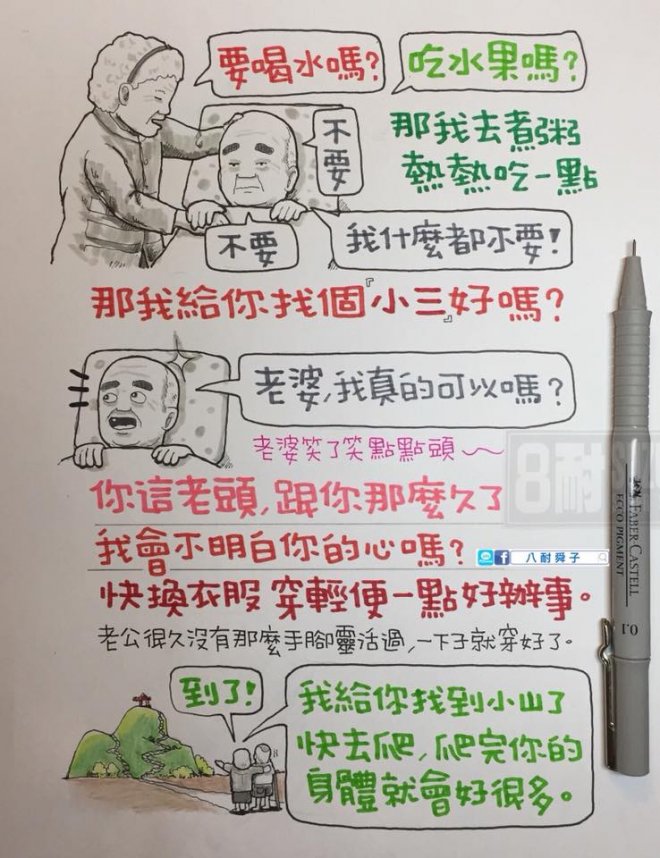 要喝水嗎?
吃水果嗎?
不要
那我去煮粥
熱熱吃一點
不要
我什麼都不要!
那我給你找個『小三』好嗎?
老婆,我真的可以嗎?
老婆笑了笑點點頭~
你這老頭,跟你那麼久了
我會不明白你的心嗎?
八耐舜子
快換衣服 穿輕便一點好辦事。
老公很久沒有那麼手腳靈活過,一下子就穿好了。
到了!
我給你找到小山了
快去爬,爬完你的
身體就會好很多。
8耐
FABER CASTELL
ECCO PIGMENT
0.1